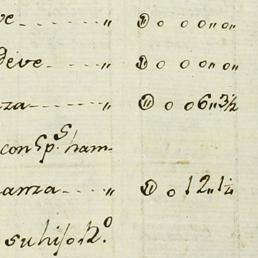 ve " 0 0 0 " 0 "
Deve " 0 0 0 " 0 "
za " 0 0 6 " 3/2
con Sp.s ham-
anza " 0 12 " 1/4
su hijo